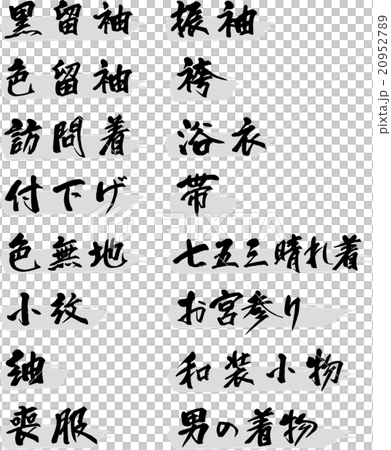 黒留袖
色留袖
訪問着
付下げ
色無地
小紋
紬
喪服
振袖
袴
浴衣
帯
七五三晴れ着
お宮参り
和装小物
男の着物
PIXTA
pixta.jp - 20952789